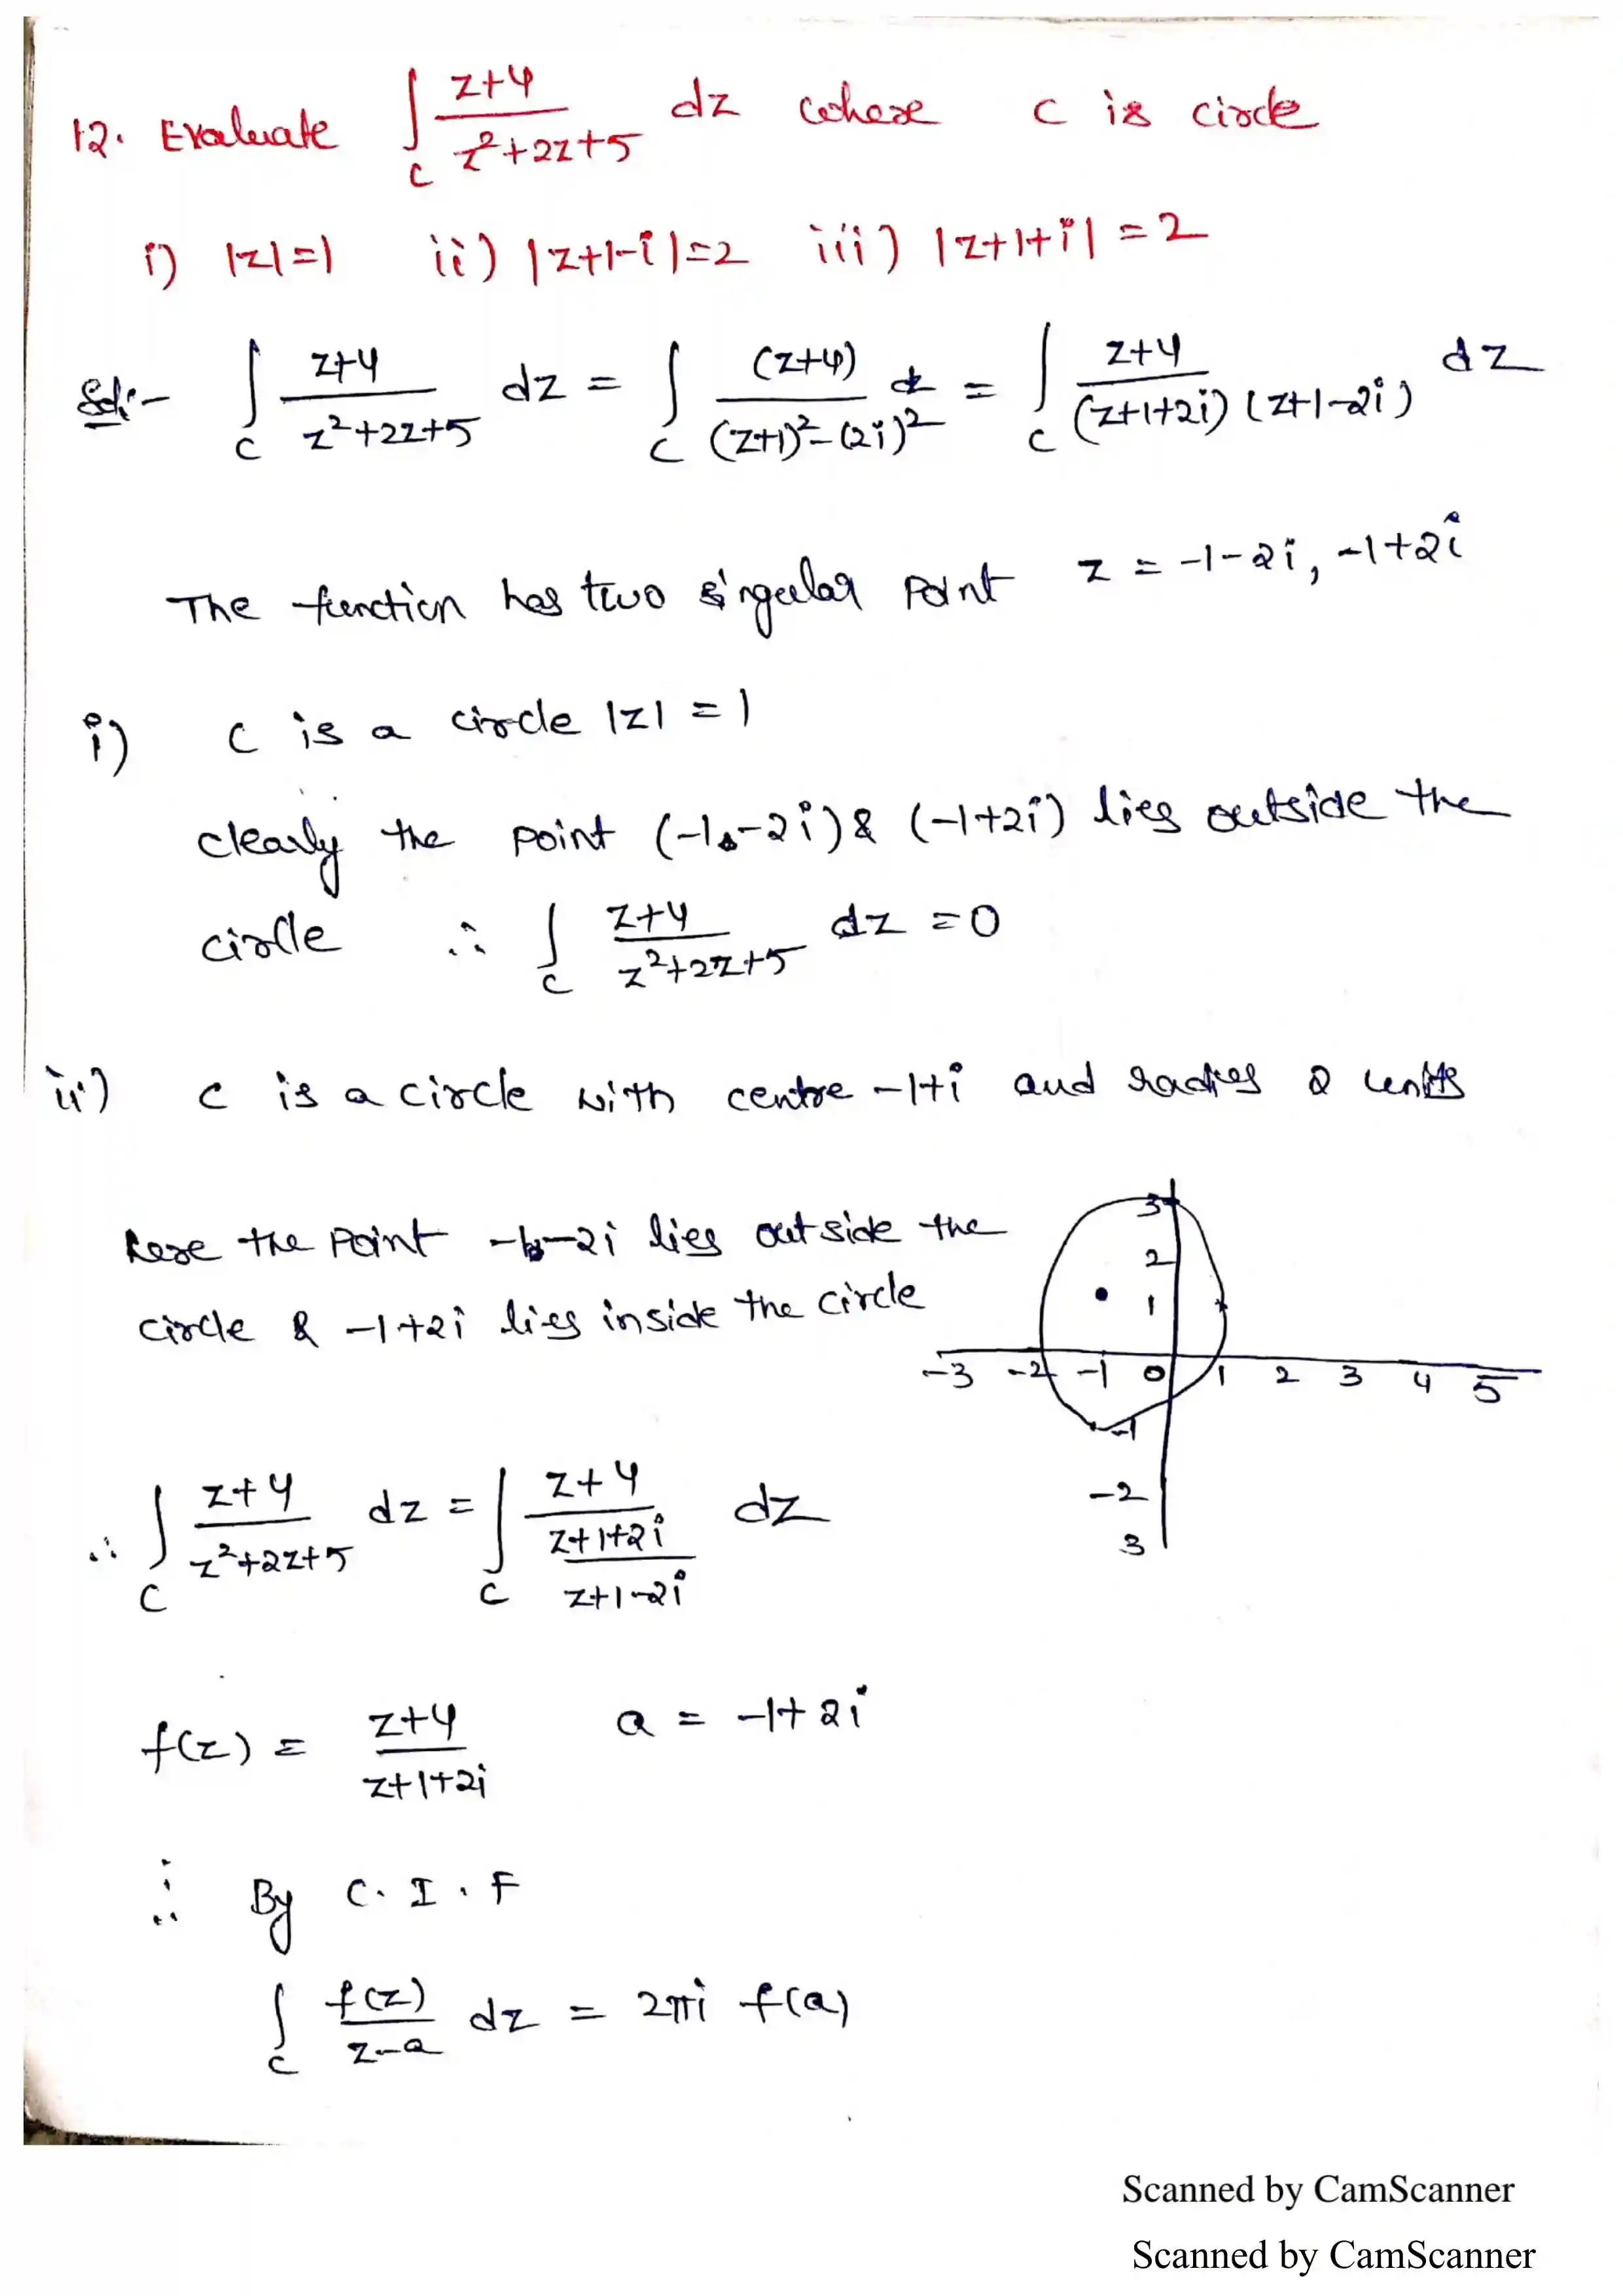 12. Evaluate ∫_C (z+4)/(z²+2z+5) dz where C is circle
i) |z|=1 ii) |z+1-i|=2 iii) |z+1+i|=2
Sol:- ∫_C (z+4)/(z²+2z+5) dz = ∫_C (z+4)/((z+1)²-(2i)²) dz = ∫_C (z+4)/((z+1+2i)(z+1-2i)) dz
The function has two singular point z = -1-2i, -1+2i
i) C is a circle |z| = 1
clearly the point (-1-2i) & (-1+2i) lies outside the
circle ∴ ∫_C (z+4)/(z²+2z+5) dz =0
ii) C is a circle with centre -1+i and radius 2 units
here the point -1-2i lies outside the
circle & -1+2i lies inside the circle
3
2
1
-3 -2 -1 0 1 2 3 4 5
-1
-2
3
∴ ∫_C (z+4)/(z²+2z+5) dz = ∫_C ((z+4)/(z+1+2i))/(z+1-2i) dz
f(z) = (z+4)/(z+1+2i) a = -1+2i
∴ By C.I.F
∫_C f(z)/(z-a) dz = 2πi f(a)
Scanned by CamScanner
Scanned by CamScanner